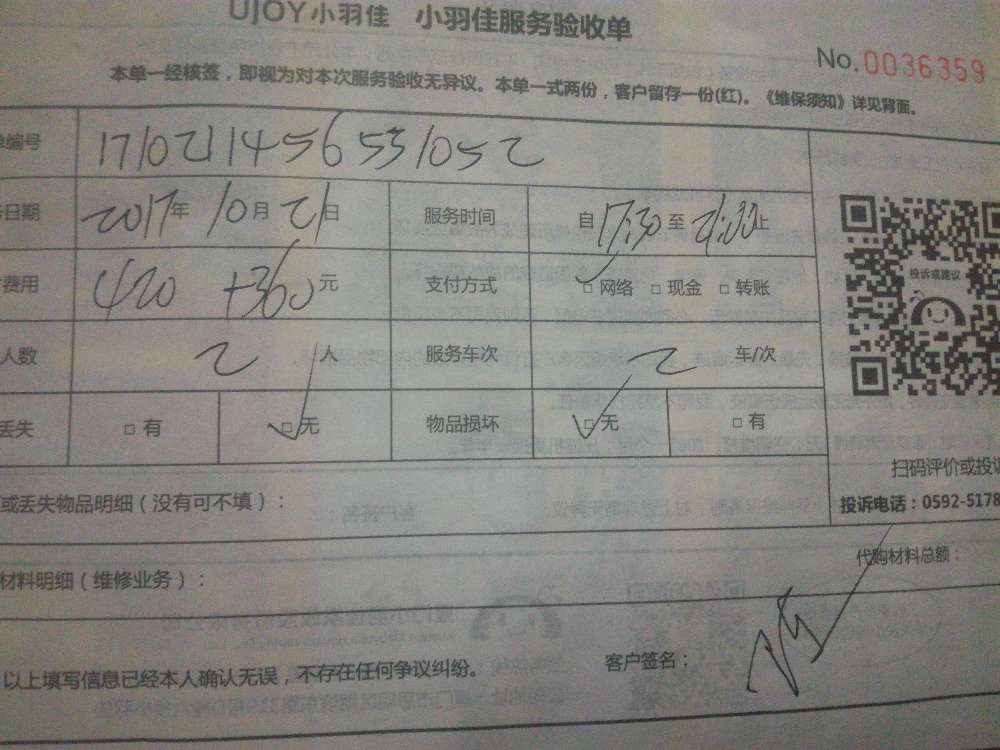 UJOY小羽佳 小羽佳服务验收单
No.0036359
本单一经核签，即视为对本次服务验收无异议。本单一式两份，客户留存一份(红)。《维保须知》详见背面。
单编号 17102114565531052
日期 2017年 10月 21日 服务时间 自17:30至21:30止
费用 420 +360元 支付方式 □网络 □现金 □转账
人数 2 人 服务车次 2 车/次
丢失 □有 □无 物品损坏 □无 □有
投诉或建议
扫码评价或投诉
投诉电话：0592-5178
或丢失物品明细（没有可不填）：
材料明细（维修业务）：
代购材料总额：
以上填写信息已经本人确认无误，不存在任何争议纠纷。
客户签名：